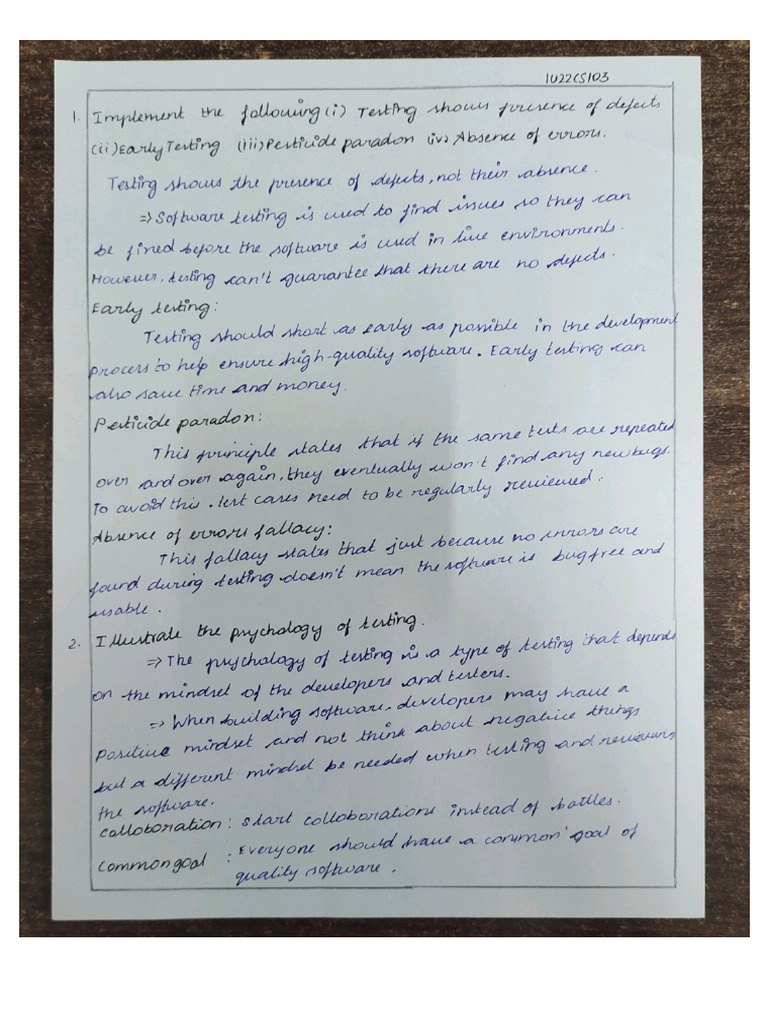 1U22CS103
1. Implement the following (i) Testing shows presence of defects
(ii) Early Testing (iii) Pesticide paradon (iv) Absence of errors.
Testing shows the presence of defects, not their absence.
=> Software testing is used to find issues so they can
be fined before the software is used in live environments.
However, testing can't guarantee that there are no defects.
Early testing:
Testing should short as early as possible in the development
process to help ensure high-quality software. Early testing can
also save time and money.
Pesticide paradon:
This principle states that if the same tests are repeated
over and over again, they eventually won't find any new bugs.
To avoid this, test cases need to be regularly reviewed.
Absence of errors fallacy:
This fallacy states that just because no errors are
found during testing doesn't mean the software is bug free and
usable.
2. Illustrate the psychology of testing.
=> The psychology of testing is a type of testing that depends
on the mindset of the developers and testers.
=> When building software, developers may have a
positive mindset and not think about negative things
but a different mindset be needed when testing and reviewing
the software.
colloboration: start colloborations instead of battles.
common goal : Everyone should have a common goal of
quality software.